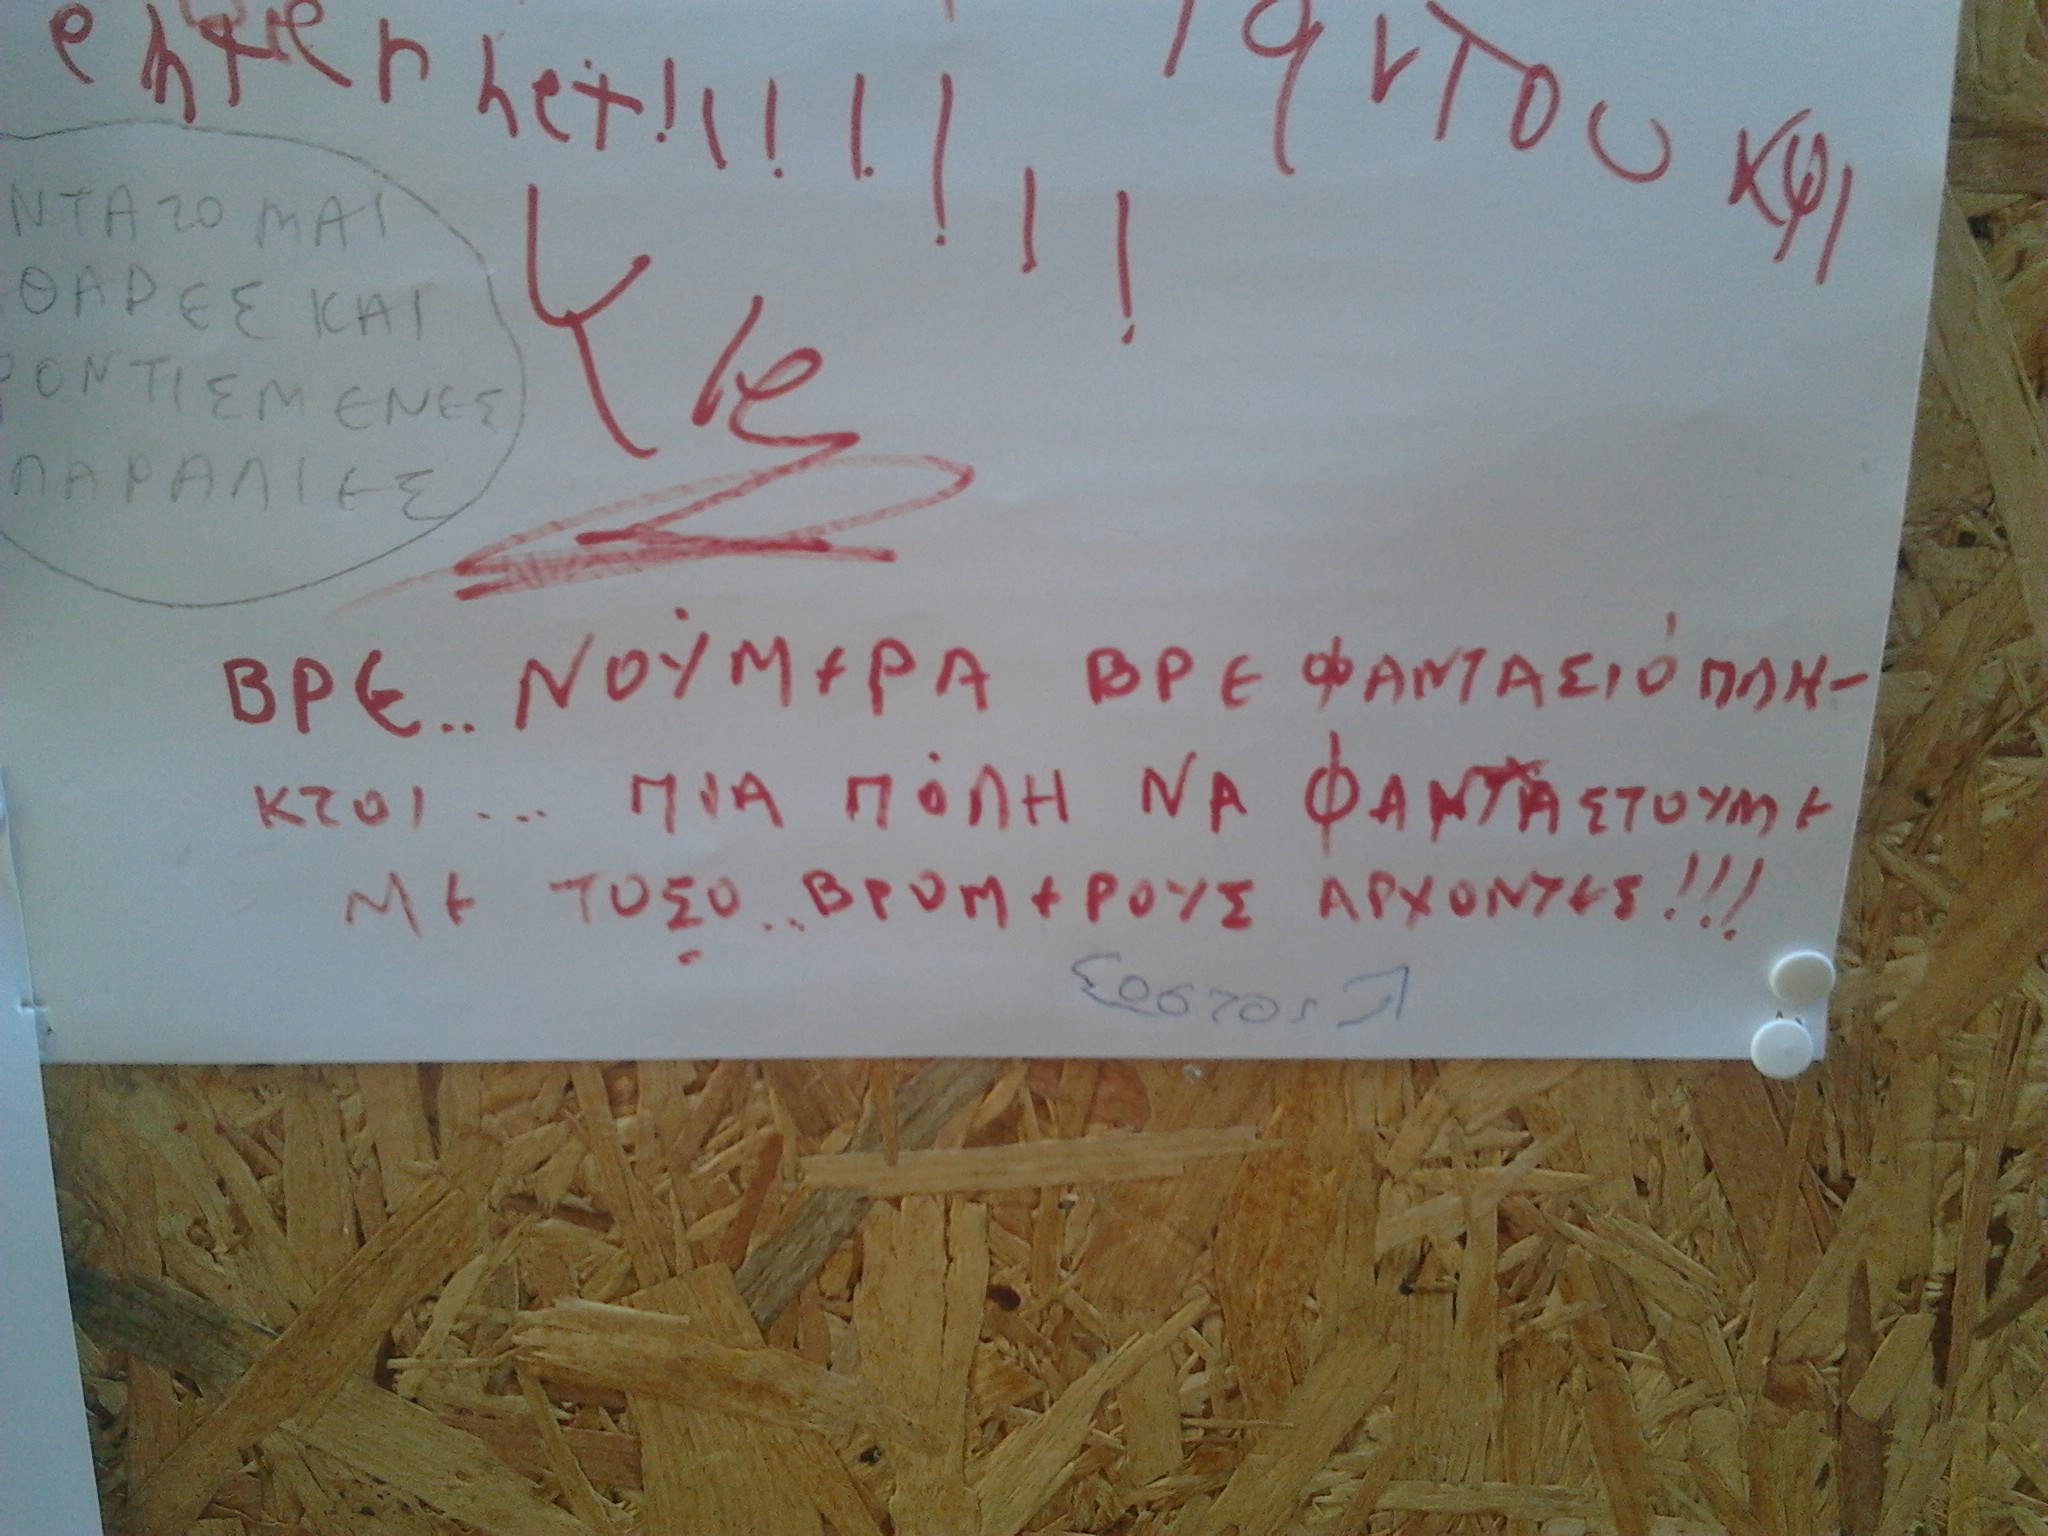 internet!!!!!!!!
παντού και
ΝΤΑΖΟΜΑΙ
ΘΑΡΕΣ ΚΑΙ
ΡΟΝΤΙΣΜΕΝΕΣ
ΠΑΡΑΛΙΕΣ
ΒΡΕ.. ΝΟΎΜΕΡΑ ΒΡΕ ΦΑΝΤΑΣΙΌΠΛΗ-
ΚΤΟΙ ... ΜΙΑ ΠΌΛΗ ΝΑ ΦΑΝΤΑΣΤΟΥΜΕ
ΜΕ ΤΟΣΟ.. ΒΡΟΜΕΡΟΥΣ ΑΡΧΟΝΤΕΣ!!!